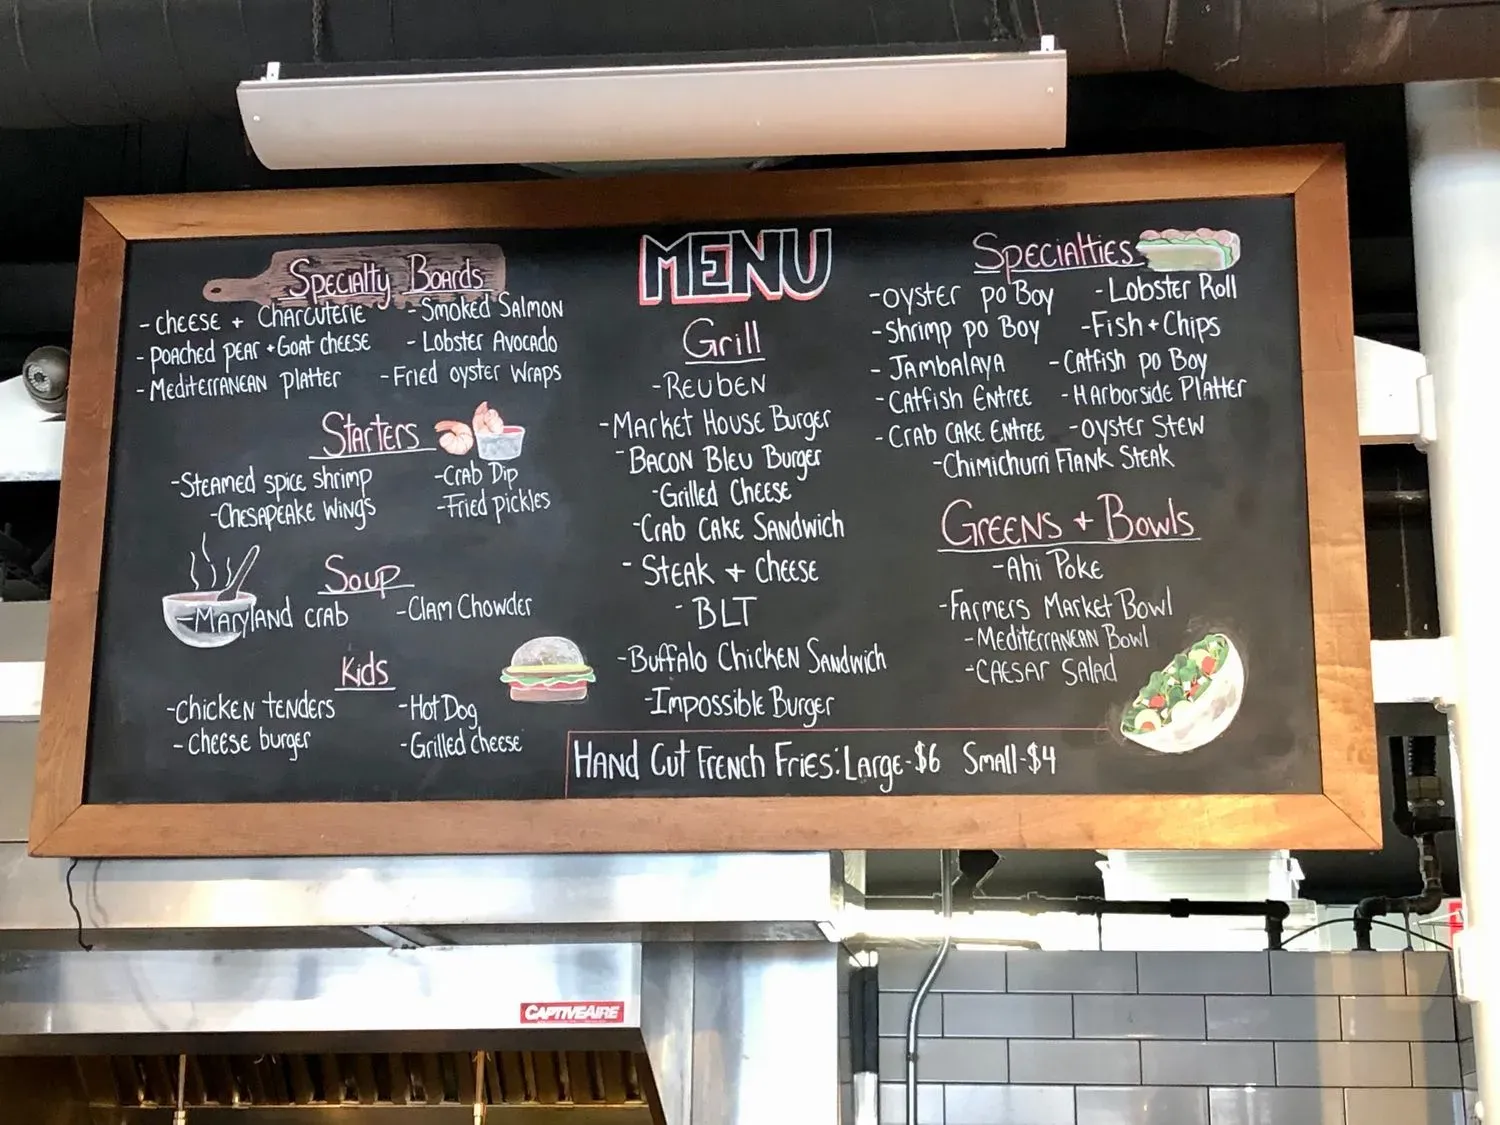 MENU
Specialty Boards
- Cheese + Charcuterie
- Poached Pear + Goat Cheese
- Mediterranean Platter
- Smoked Salmon
- Lobster Avocado
- Fried Oyster Wraps
Starters
- Steamed Spice Shrimp
- Chesapeake Wings
- Crab Dip
- Fried Pickles
Soup
- Maryland Crab
- Clam Chowder
Kids
- Chicken Tenders
- Cheese burger
- Hot Dog
- Grilled Cheese
Grill
- Reuben
- Market House Burger
- Bacon Bleu Burger
- Grilled Cheese
- Crab Cake Sandwich
- Steak + Cheese
- BLT
- Buffalo Chicken Sandwich
- Impossible Burger
Specialties
- Oyster Po Boy
- Shrimp Po Boy
- Jambalaya
- Catfish Entree
- Crab Cake Entree
- Lobster Roll
- Fish + Chips
- Catfish Po Boy
- Harborside Platter
- Oyster Stew
- Chimichurri Flank Steak
Greens + Bowls
- Ahi Poke
- Farmers Market Bowl
- Mediterranean Bowl
- Caesar Salad
Hand Cut French Fries: Large-$6 Small-$4
CAPTIVEAIRE